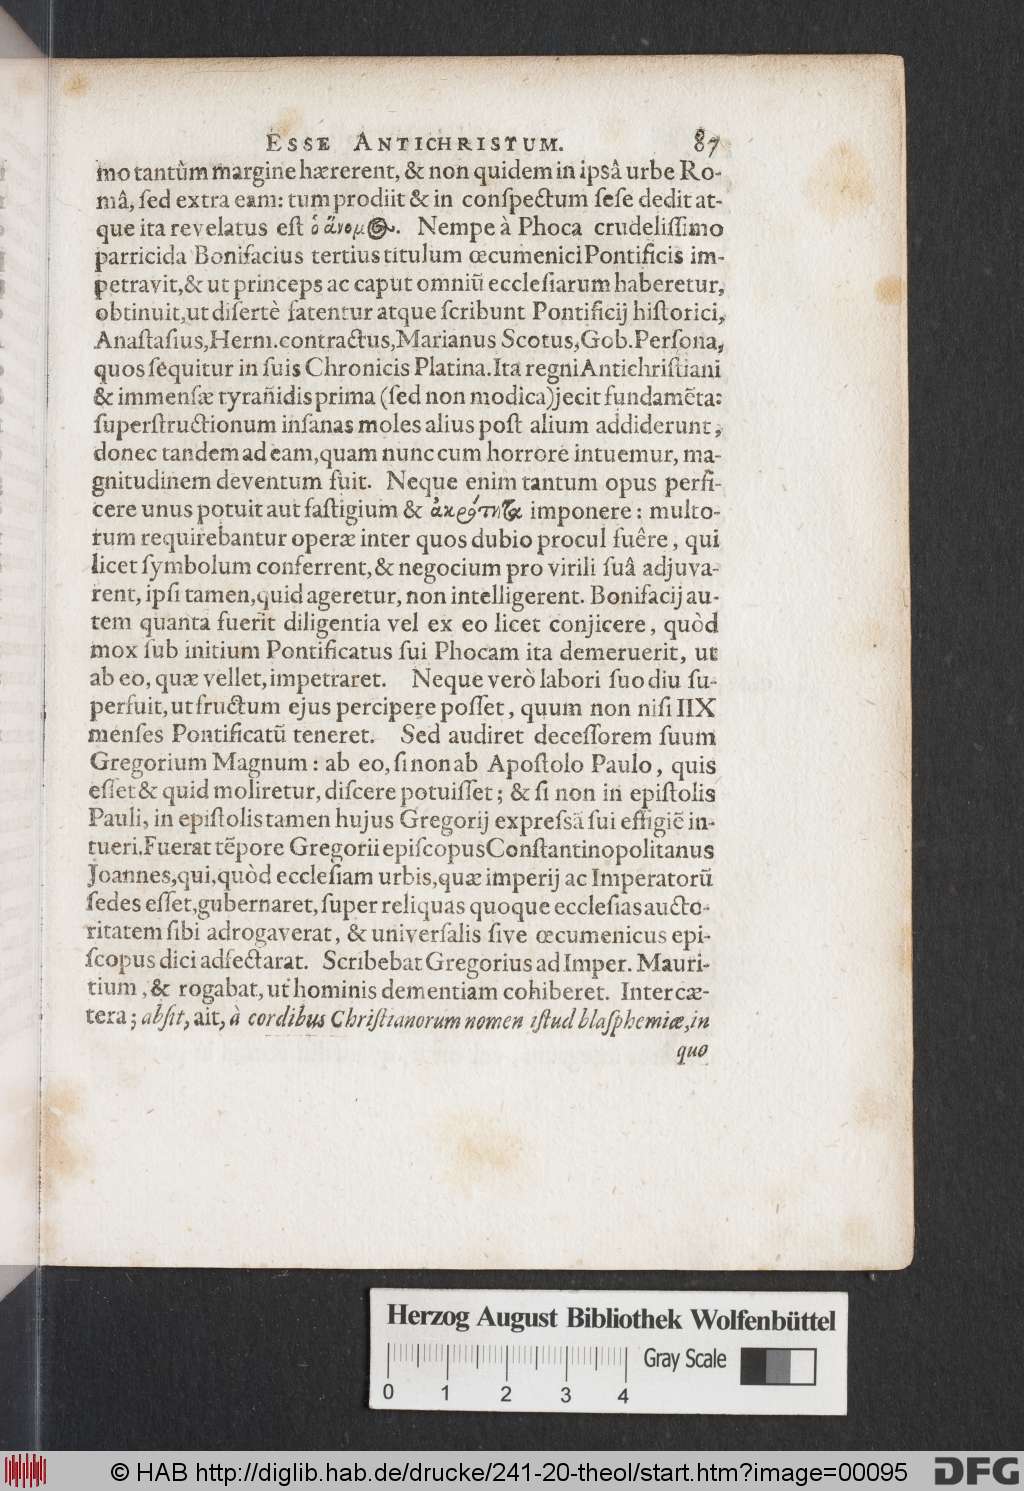 ESSE ANTICHRISTUM. 87
mo tantùm margine hærerent, & non quidem in ipsâ urbe Ro-
mâ, ſed extra eam: tum prodiit & in conſpectum ſeſe dedit at-
que ita revelatus eſt ὁ ἄνομος. Nempe à Phoca crudeliſſimo
parricida Bonifacius tertius titulum œcumenici Pontificis im-
petravit, & ut princeps ac caput omniũ eccleſiarum haberetur,
obtinuit, ut diſertè fatentur atque ſcribunt Pontificij hiſtorici,
Anaſtaſius, Herm. contractus, Marianus Scotus, Gob. Perſona,
quos ſequitur in ſuis Chronicis Platina. Ita regni Antichriſtiani
& immenſæ tyrañidis prima (ſed non modica) jecit fundamẽta:
ſuperſtructionum inſanas moles alius poſt alium addiderunt,
donec tandem ad eam, quam nunc cum horrore intuemur, ma-
gnitudinem deventum fuit. Neque enim tantum opus perfi-
cere unus potuit aut faſtigium & ἀκρότητα imponere: multo-
rum requirebantur operæ inter quos dubio procul fuêre, qui
licet ſymbolum conferrent, & negocium pro virili ſuâ adjuva-
rent, ipſi tamen, quid ageretur, non intelligerent. Bonifacij au-
tem quanta fuerit diligentia vel ex eo licet conjicere, quòd
mox ſub initium Pontificatus ſui Phocam ita demeruerit, ut
ab eo, quæ vellet, impetraret. Neque verò labori ſuo diu ſu-
perfuit, ut fructum ejus percipere poſſet, quum non niſi IIX
menſes Pontificatũ teneret. Sed audiret deceſſorem ſuum
Gregorium Magnum: ab eo, ſi non ab Apoſtolo Paulo, quis
eſſet & quid moliretur, diſcere potuiſſet; & ſi non in epiſtolis
Pauli, in epiſtolis tamen hujus Gregorij expreſsã ſui effigiẽ in-
tueri. Fuerat tẽpore Gregorii epiſcopus Conſtantinopolitanus
Joannes, qui, quòd eccleſiam urbis, quæ imperij ac Imperatorũ
ſedes eſſet, gubernaret, ſuper reliquas quoque eccleſias aucto-
ritatem ſibi adrogaverat, & univerſalis ſive œcumenicus epi-
ſcopus dici adfectarat. Scribebat Gregorius ad Imper. Mauri-
tium, & rogabat, ut hominis dementiam cohiberet. Inter cæ-
tera; abſit, ait, à cordibus Chriſtianorum nomen iſtud blaſphemiæ, in
quo
Herzog August Bibliothek Wolfenbüttel
0 1 2 3 4 Gray Scale
© HAB http://diglib.hab.de/drucke/241-20-theol/start.htm?image=00095 DFG